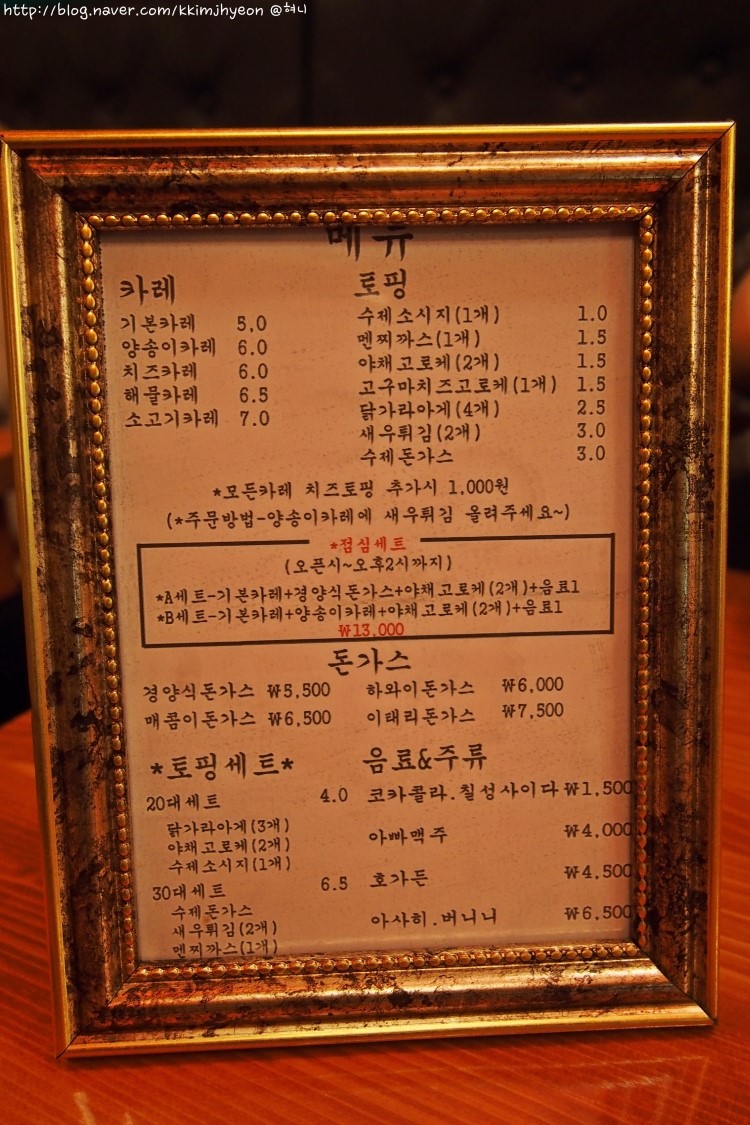 http://blog.naver.com/kkimjhyeon @혀니
메뉴
카레
기본카레 5.0
양송이카레 6.0
치즈카레 6.0
해물카레 6.5
소고기카레 7.0
토핑
수제소시지(1개) 1.0
멘찌까스(1개) 1.5
야채고로케(2개) 1.5
고구마치즈고로케(1개) 1.5
닭가라아게(4개) 2.5
새우튀김(2개) 3.0
수제돈가스 3.0
*모든카레 치즈토핑 추가시 1.000원
(*주문방법-양송이카레에 새우튀김 올려주세요~)
*점심세트
(오픈시~오후2시까지)
*A세트-기본카레+경양식돈가스+야채고로케(2개)+음료1
*B세트-기본카레+양송이카레+야채고로케(2개)+음료1
₩13,000
돈가스
경양식돈가스 ₩5,500 하와이돈가스 ₩6,000
매콤이돈가스 ₩6,500 이태리돈가스 ₩7,500
*토핑세트*
20대세트 4.0
닭가라아게(3개)
야채고로케(2개)
수제소시지(1개)
30대세트 6.5
수제돈가스
새우튀김(2개)
멘찌까스(1개)
음료&주류
코카콜라.칠성사이다 ₩1,500
아빠맥주 ₩4,000
호가든 ₩4,500
아사히.버니니 ₩6,500